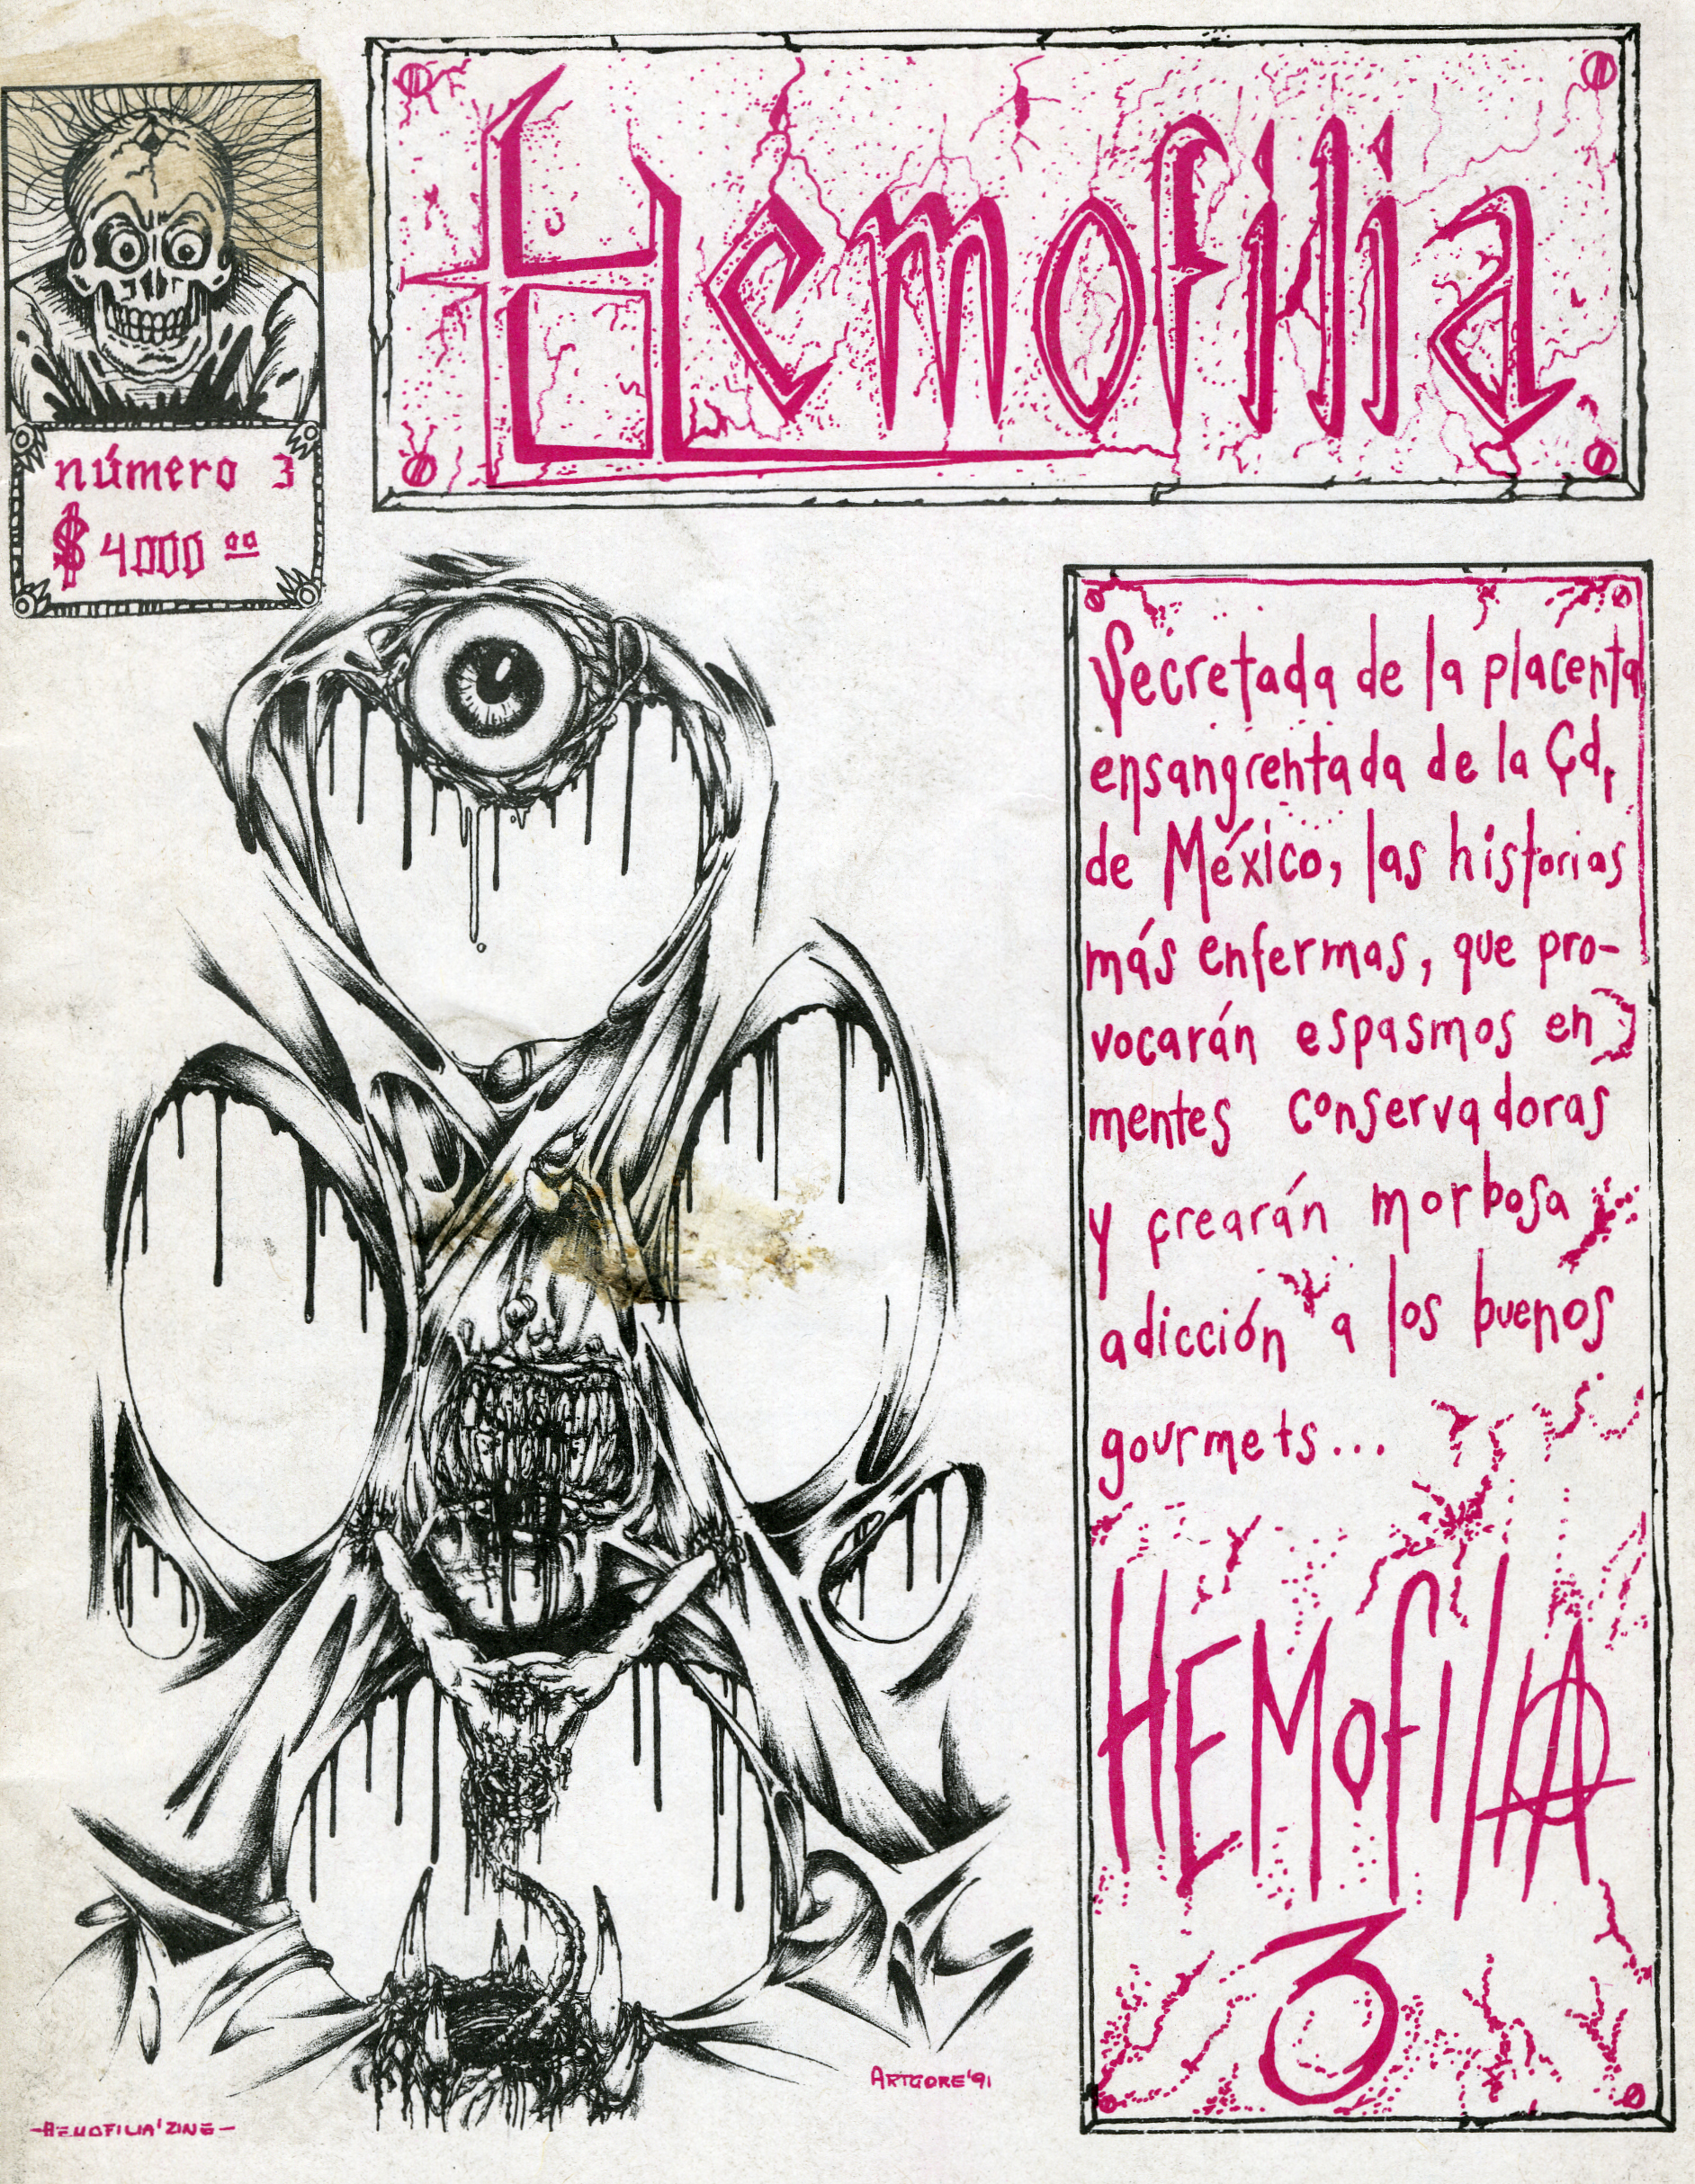 Hemofilia
número 3
$ 4000 00
Secretada de la placenta
ensangrentada de la Cd.
de México, las historias
más enfermas, que pro-
vocarán espasmos en
mentes conservadoras
y crearán morbosa
adicción a los buenos
gourmets...
HEMofiliA
3
ARTGORE'91
-HEMOFILIA'ZINE-